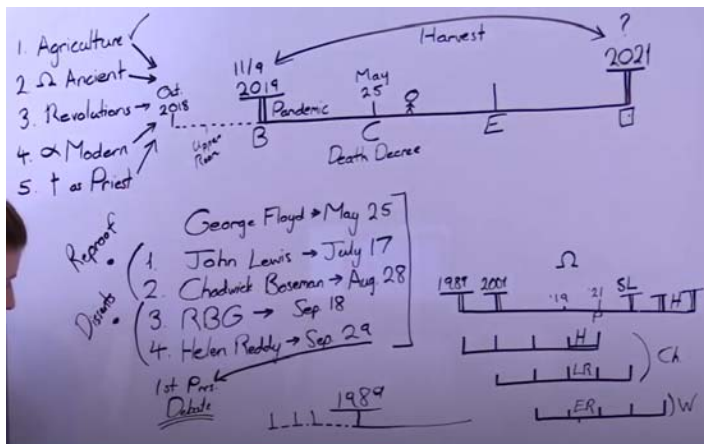 1. Agriculture
2. Ω Ancient
3. Revolutions → Oct. 2018
4. α Modern
5. † as Priest
Upper Room
11/9
2019
Pandemic
May
25
Harvest
?
2021
B
C
E
Death Decree
George Floyd → May 25
Reproof
1. John Lewis → July 17
2. Chadwick Boseman → Aug. 28
3. RBG → Sep. 18
4. Helen Reddy → Sep. 29
1st Pres.
Debate
1989
Ω
1989 2001 '19 '21 SL H
P
H
LR
Ch
ER
W